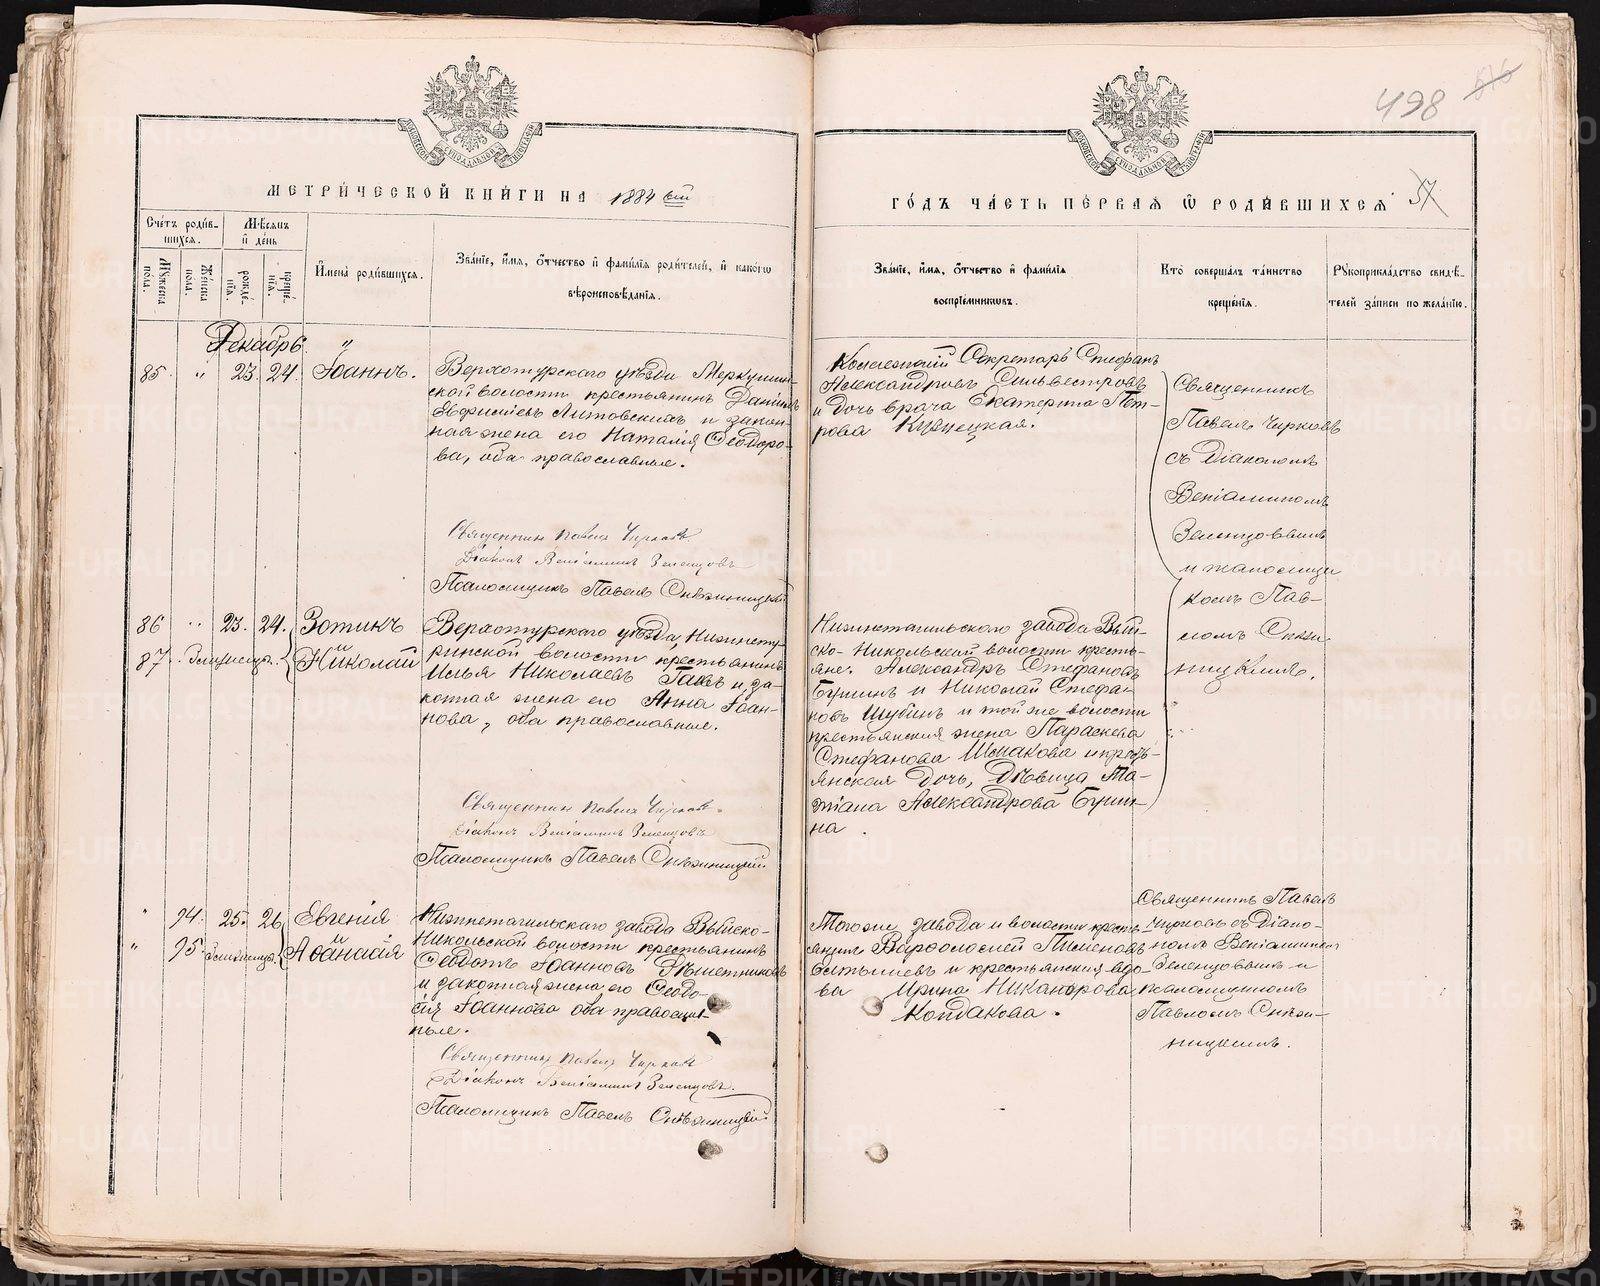 498
516
МОСКОВСКОЙ СѴНОДАЛЬНОЙ ТИПОГРАФІИ
МОСКОВСКОЙ СѴНОДАЛЬНОЙ ТИПОГРАФІИ
МЕТРИ́ЧЕСКОЙ КНИ́ГИ НА 1884 ый
ГО́ДЪ ЧА́СТЬ ПЕ́РВАЯ Ѡ РОДИ́ВШИХСЯ 57
Сче́тъ роди́в-
шихся.
Мѣ́сяцъ
и де́нь
Му́жеска по́ла.
Же́нска по́ла.
рожде́-
нія.
креще́-
нія.
Имена̀ роди́вшихся.
Зва́ніе, и́мя, о́тчество и фами́лія роди́телей, и како́гѡ
вѣроисповѣ́данія.
Зва́ніе, и́мя, о́тчество и фами́лія
воспріе́мниковъ.
Кто̀ соверша́лъ та́инство
креще́нія.
Рꙋкоприкла́дство свидѣ́-
телей за́писи по жела́нію.
Декабрь "
85. " 23. 24. Іоаннъ.
Верхотурскаго уѣзда Меркушин-
ской волости крестьянинъ Даніилъ
Евфиміевъ Литовскихъ и закон-
ная жена его Наталія Ѳеодоро-
ва, оба православные.
Священник Павелъ Чирковъ
Діаконъ Веніаминъ Зеленцовъ
Псаломщикъ Павелъ Снѣжницкій
Коллежскій Секретарь Стефанъ
Александровъ Сильвестровъ
и дочь врача Екатерина Пет-
рова Кузнецкая.
Священникъ
Павелъ Чирковъ
съ Діакономъ
Веніаминомъ
Зеленцовымъ
и псаломщи
комъ Пав-
ломъ Снѣж-
ницкимъ.
86 " 23. 24. Зотикъ
87. " Близнецы. Николай
Верхотурскаго уѣзда, Нижнету-
ринской волости крестьянинъ
Илья Николаевъ Гаевъ и за-
конная жена его Анна Іоан-
нова, оба православные.
Священник Павелъ Чирковъ
Діаконъ Веніаминъ Зеленцовъ
Псаломщикъ Павелъ Снѣжницкій
Нижнетагильскаго завода Вый-
ско-Никольской волости кресть-
яне: Александръ Стефановъ
Бушинъ и Николай Стефа-
новъ Шубинъ и той же волости
крестьянская жена Параскева
Стефанова Ишмакова и кресть-
янская дочь, дѣвица Та-
тіана Александрова Буши-
на.
" 94. 25. 26 Евгенія
" 95. Близнецы. Аѳанасія
Нижнетагильскаго завода Выйско-
Никольской волости крестьянинъ
Ѳеодотъ Іоанновъ Рѣшетниковъ
и законная жена его Ѳеодо-
сія Іоаннова оба православ-
ные.
Священник Павелъ Чирковъ
Діаконъ Веніаминъ Зеленцовъ.
Псаломщикъ Павелъ Снѣжницкій
Того же завода и волости кресть-
янинъ Варѳоломей Пименовъ
и крестьянская вдо-
ва Ирина Никанорова
Кондакова.
Священникъ Павелъ
Чирковъ съ Діако-
номъ Веніаминомъ
Зеленцовымъ и
псаломщикомъ
Павломъ Снѣж-
ницкимъ.
METRIKI.GASO-URAL.RU